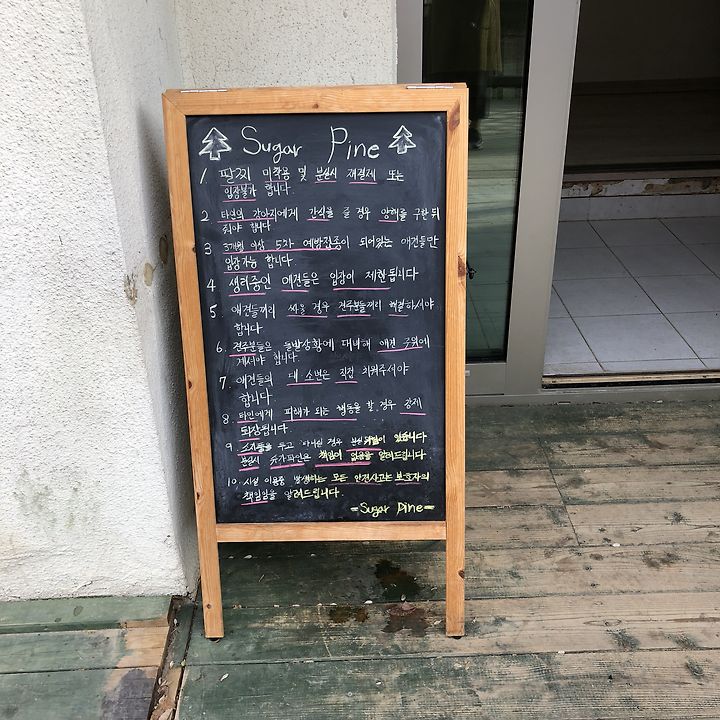 Sugar Pine
1 팔찌 미착용 및 분실시 재결제 또는
입장불가 합니다.
2 타인의 강아지에게 간식을 줄 경우 양해를 구한 뒤
줘야 합니다
3 3개월 이상 5차 예방접종이 되어있는 애견들만
입장가능 합니다.
4 생리중인 애견들은 입장이 제한됩니다
5 애견들끼리 싸울 경우 견주분들끼리 해결하셔야
합니다
6. 견주분들은 돌발상황에 대비해 애견 주위에
계셔야 합니다.
7. 애견들의 대 소변은 직접 치워주셔야
합니다.
8. 타인에게 피해가 되는 행동을 할 경우 강제
퇴장됩니다.
9. 소지품을 두고 다니실 경우 분실위험이 있습니다
분실시 슈가파인은 책임이 없음을 알려드립니다
10. 시설 이용중 발생하는 모든 안전사고는 보호자의
책임임을 알려드립니다.
-Sugar Pine-